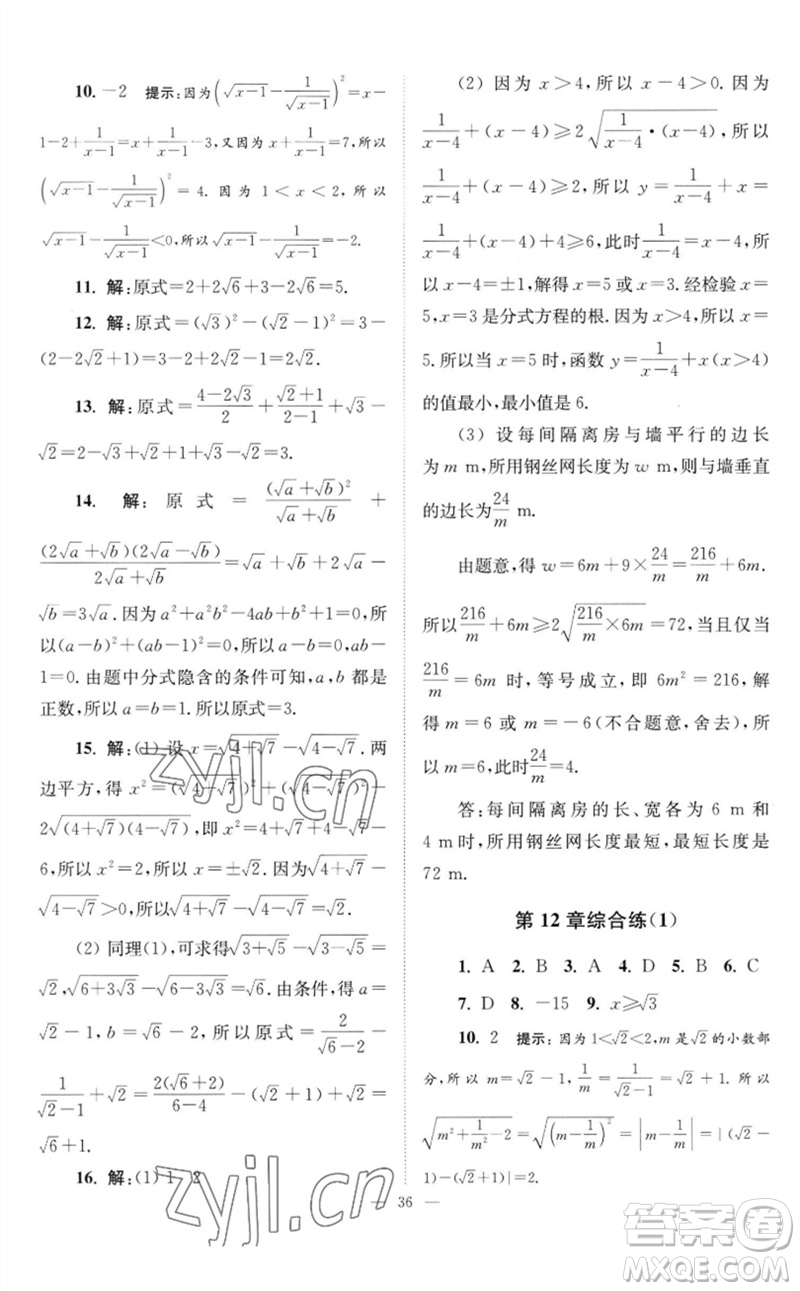 10. －2 提示:因为(√(x－1)－1/√(x－1))²＝x－
1－2＋1/(x－1)＝x＋1/(x－1)－3,又因为x＋1/(x－1)＝7,所以
(√(x－1)－1/√(x－1))²＝4. 因为 1＜x＜2, 所以
√(x－1)－1/√(x－1)＜0,所以√(x－1)－1/√(x－1)＝－2.
11. 解:原式＝2＋2√6＋3－2√6＝5.
12. 解:原式＝(√3)²－(√2－1)²＝3－
(2－2√2＋1)＝3－3＋2√2＝2√2.
13. 解:原式＝(4－2√3)/2＋(√2＋1)/(2－1)＋√3－
√2＝2－√3＋√2＋1＋√3－√2＝3.
14. 解:原式＝(√a＋√b)²/(√a＋√b)＋
(2√a＋√b)(2√a－√b)/(2√a＋√b)＝√a＋√b＋2√a－
√b＝3√a. 因为a²＋a²b²－4ab＋b²＋1＝0,所
以(a－b)²＋(ab－1)²＝0,所以a－b＝0,ab－
1＝0. 由题中分式隐含的条件可知,a,b 都是
正数,所以a＝b＝1. 所以原式＝3.
15. 解:(1) 设 x＝√(4＋√7)－√(4－√7). 两
边平方,得 x²＝(√(4＋√7))²＋(√(4－√7))²－
2√((4＋√7)(4－√7)),即x²＝4＋√7＋4－√7－
6,所以 x²＝2,所以 x＝±√2. 因为√(4＋√7)－
√(4－√7)＞0,所以√(4＋√7)－√(4－√7)＝√2.
(2) 同理(1),可求得√(3＋√5)－√(3－√5)＝
√2,√(6＋3√3)－√(6－3√3)＝√6. 由条件,得 a＝
√2－1,b＝√6－2,所以原式＝2/(√6－2)－
1/(√2－1)＋√2＝2(√6＋2)/(6－4)－(√2＋1)＋√2＝
√6＋1.
16. 解:(1) 1 2
(2) 因为 x＞4,所以 x－4＞0. 因为
1/(x－4)＋(x－4)≥2√(1/(x－4)·(x－4)),所以
1/(x－4)＋(x－4)≥2,所以 y＝1/(x－4)＋x＝
1/(x－4)＋(x－4)＋4≥6,此时1/(x－4)＝x－4,所
以 x－4＝±1,解得 x＝5 或 x＝3. 经检验 x＝
5,x＝3 是分式方程的根. 因为 x＞4,所以 x＝
5. 所以当 x＝5 时,函数 y＝1/(x－4)＋x(x＞4)
的值最小,最小值是 6.
(3) 设每间隔离房与墙平行的边长
为 m m,所用钢丝网长度为 w m,则与墙垂直
的边长为24/m m.
由题意,得 w＝6m＋9×24/m＝216/m＋6m.
所以216/m＋6m≥2√(216/m×6m)＝72,当且仅当
216/m＝6m 时,等号成立,即 6m²＝216,解
得 m＝6 或 m＝－6(不合题意,舍去),所
以 m＝6,此时24/m＝4.
答:每间隔离房的长、宽各为 6 m 和
4 m时,所用钢丝网长度最短,最短长度是
72 m.
第 12 章综合练(1)
1. A 2. B 3. A 4. D 5. B 6. C
7. D 8. －15 9. x≥√3
10. 2 提示:因为 1＜√2＜2,m 是√2的小数部
分,所以 m＝√2－1,所以1/m＝1/(√2－1)＝√2＋1. 所以
√(m²＋1/m²－2)＝√((m－1/m)²)＝|m－1/m|＝|(√2－
1)－(√2＋1)|＝2.
— 36 —
zyjl.cn
zyjl.cn
答案卷
MXQE.COM